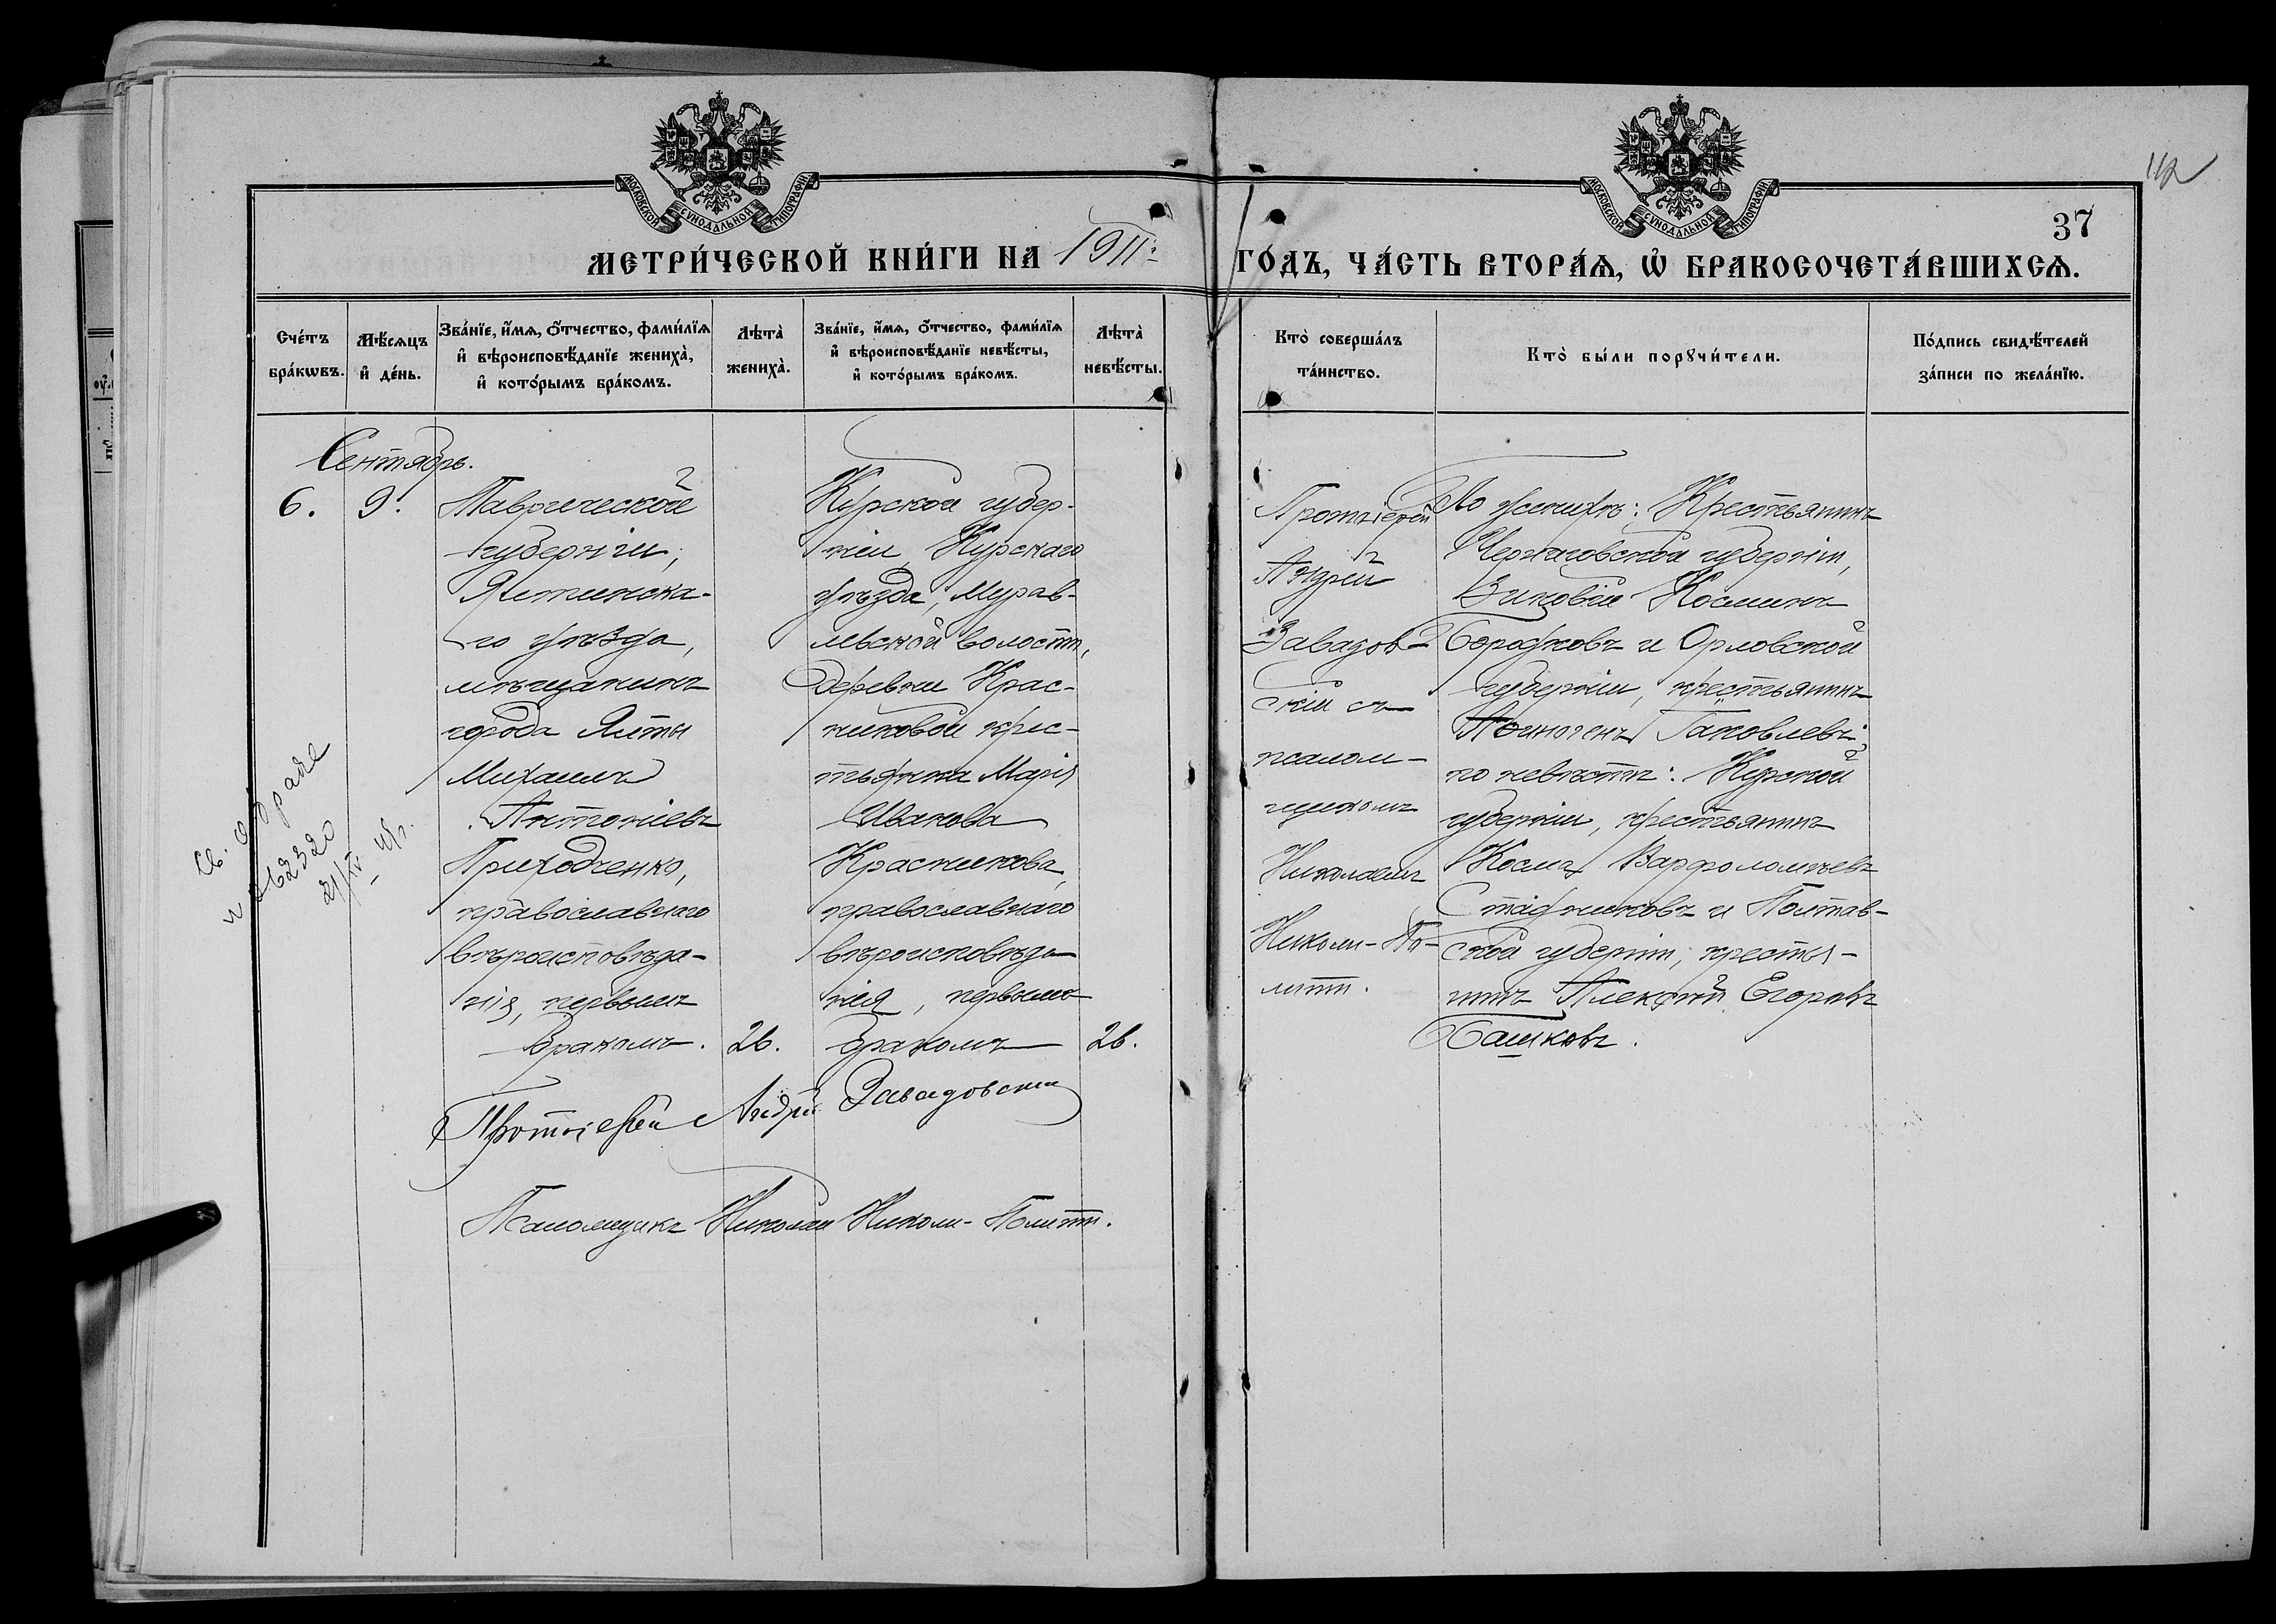 МОСКОВСКОЙ СѴНОДАЛЬНОЙ ТИПОГРАФІИ
МОСКОВСКОЙ СѴНОДАЛЬНОЙ ТИПОГРАФІИ
37
МЕТРИ́ЧЕСКОЙ КНИ́ГИ НА 1911: ГО́ДЪ, ЧА́СТЬ ВТОРА́Ѧ, Ѽ БРАКОСОЧЕТА́ВШИХСѦ.
Сче́тъ
бра́кѡвъ.
Мѣ́сѧцъ
и҆ де́нь.
Зва́нїе, и҆́мѧ, о҆́тчество, фами́лїѧ
и҆ вѣроисповѣ́данїе жениха̀,
и҆ кото́рымъ бра́комъ.
Лѣта̀
жениха̀.
Зва́нїе, и҆́мѧ, о҆́тчество, фами́лїѧ
и҆ вѣроисповѣ́данїе невѣ́сты,
и҆ кото́рымъ бра́комъ.
Лѣта̀
невѣ́сты.
Кто̀ соверша́лъ
та́инство.
Кто̀ бы́ли порꙋчи́тели.
По́дпись свидѣ́телей
за́писи по жела́нїю.
Сентябрь.
6.
9.
Таврической
губерніи,
Ялтинска-
го уѣзда,
мѣщанинъ
города Ялты
Михаилъ
Антоніевъ
Приходченко,
православнаго
вѣроисповѣда-
нія, первымъ
бракомъ.
26.
Курской губер-
ніи, Курскаго
уѣзда, Мурав-
левской волости,
деревни Крас-
никовой крес-
тьянка Марія
Иванова
Красникова,
православнаго
вѣроисповѣда-
нія, первымъ
бракомъ
26.
Протоіерей
Андрей
Завадов-
скій съ
псалом-
щикомъ
Николаемъ
Николи-По-
лити.
По женихѣ: Крестьянинъ
Черниговской губерніи,
Зиновій Косминъ
и Орловской
губерніи, крестьянинъ
Яковлевъ;
по невѣстѣ: Курской
губерніи, крестьянинъ
Косма Варфоломѣевъ
и Полтав-
ской губерніи, крестья-
нинъ Алексѣй Егоровъ
Башковъ.
Протоіерей Андрей Завадовскій
Псаломщикъ Николай Николи-Полити.
Св. о бракѣ